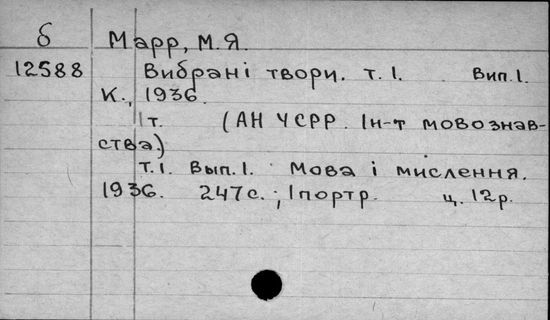 б Марр, М.Я.
12588 Вибрані твори. т. І. Вип. І.
К., 1936.
1 т. (АН УСРР. Ін-т мовознав-
ства.)
Т. І. Вып. І. Мова і мислення.
1936. 247 с.; 1 портр. ц. 12 р.